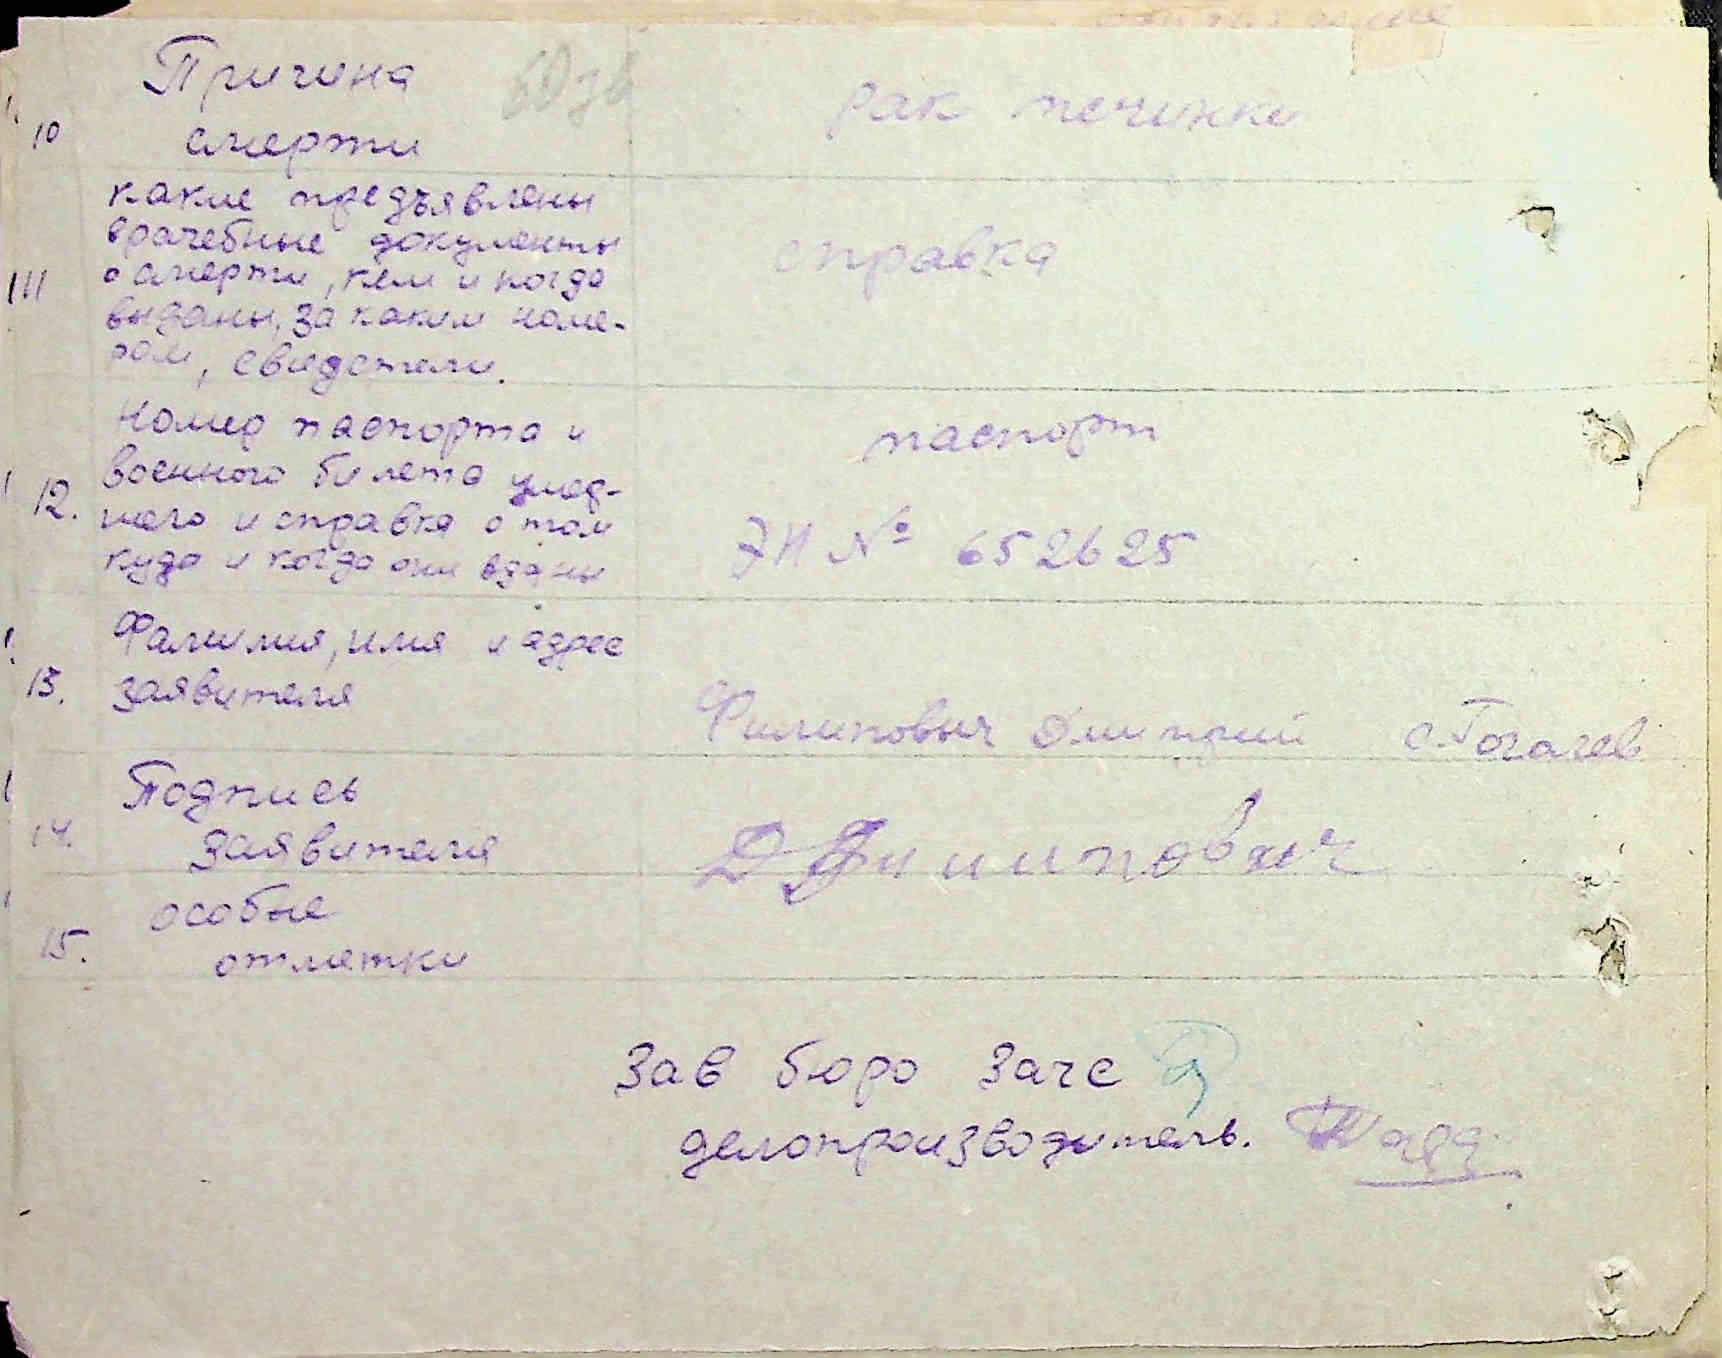 Причина
10 смерти
рак печинки
какие предъявлены
врачебные документы
11 о смерти, кем и когда
выданы, за каким номе-
ром, свидетели.
справка
Номер паспорта и
военного билета умер-
12. шего и справка о том
куда и когда они сданы
паспорт
№ 652625
Фамилия, имя и адрес
13. заявителя
Филипович Дмитрий с.
Подпись
14. заявителя
Д Филипович
особые
15. отметки
Зав бюро Загс
делопроизводитель.